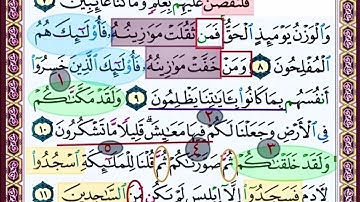 فَلَنَقُصَّنَّ عَلَيْهِم بِعِلْمٍ وَمَا كُنَّا غَآئِبِينَ ٧
وَالْوَزْنُ يَوْمَئِذٍ الْحَقُّ فَمَن ثَقُلَتْ مَوَازِينُهُ فَأُوْلَـٰٓئِكَ هُمُ
الْمُفْلِحُونَ ٨ وَمَنْ خَفَّتْ مَوَازِينُهُ فَأُوْلَـٰٓئِكَ الَّذِينَ خَسِرُوٓاْ
أَنفُسَهُم بِمَا كَانُواْ بِـَٔايَـٰتِنَا يَظْلِمُونَ ٩ وَلَقَدْ مَكَّنَّـٰكُمْ
فِي الْأَرْضِ وَجَعَلْنَا لَكُمْ فِيهَا مَعَـٰيِشَ قَلِيلًا مَّا تَشْكُرُونَ ١٠
وَلَقَدْ خَلَقْنَـٰكُمْ ثُمَّ صَوَّرْنَـٰكُمْ ثُمَّ قُلْنَا لِلْمَلَـٰٓئِكَةِ اسْجُدُواْ
لِـَٔادَمَ فَسَجَدُوٓاْ إِلَّآ إِبْلِيسَ لَمْ يَكُن مِّنَ السَّـٰجِدِينَ ١١